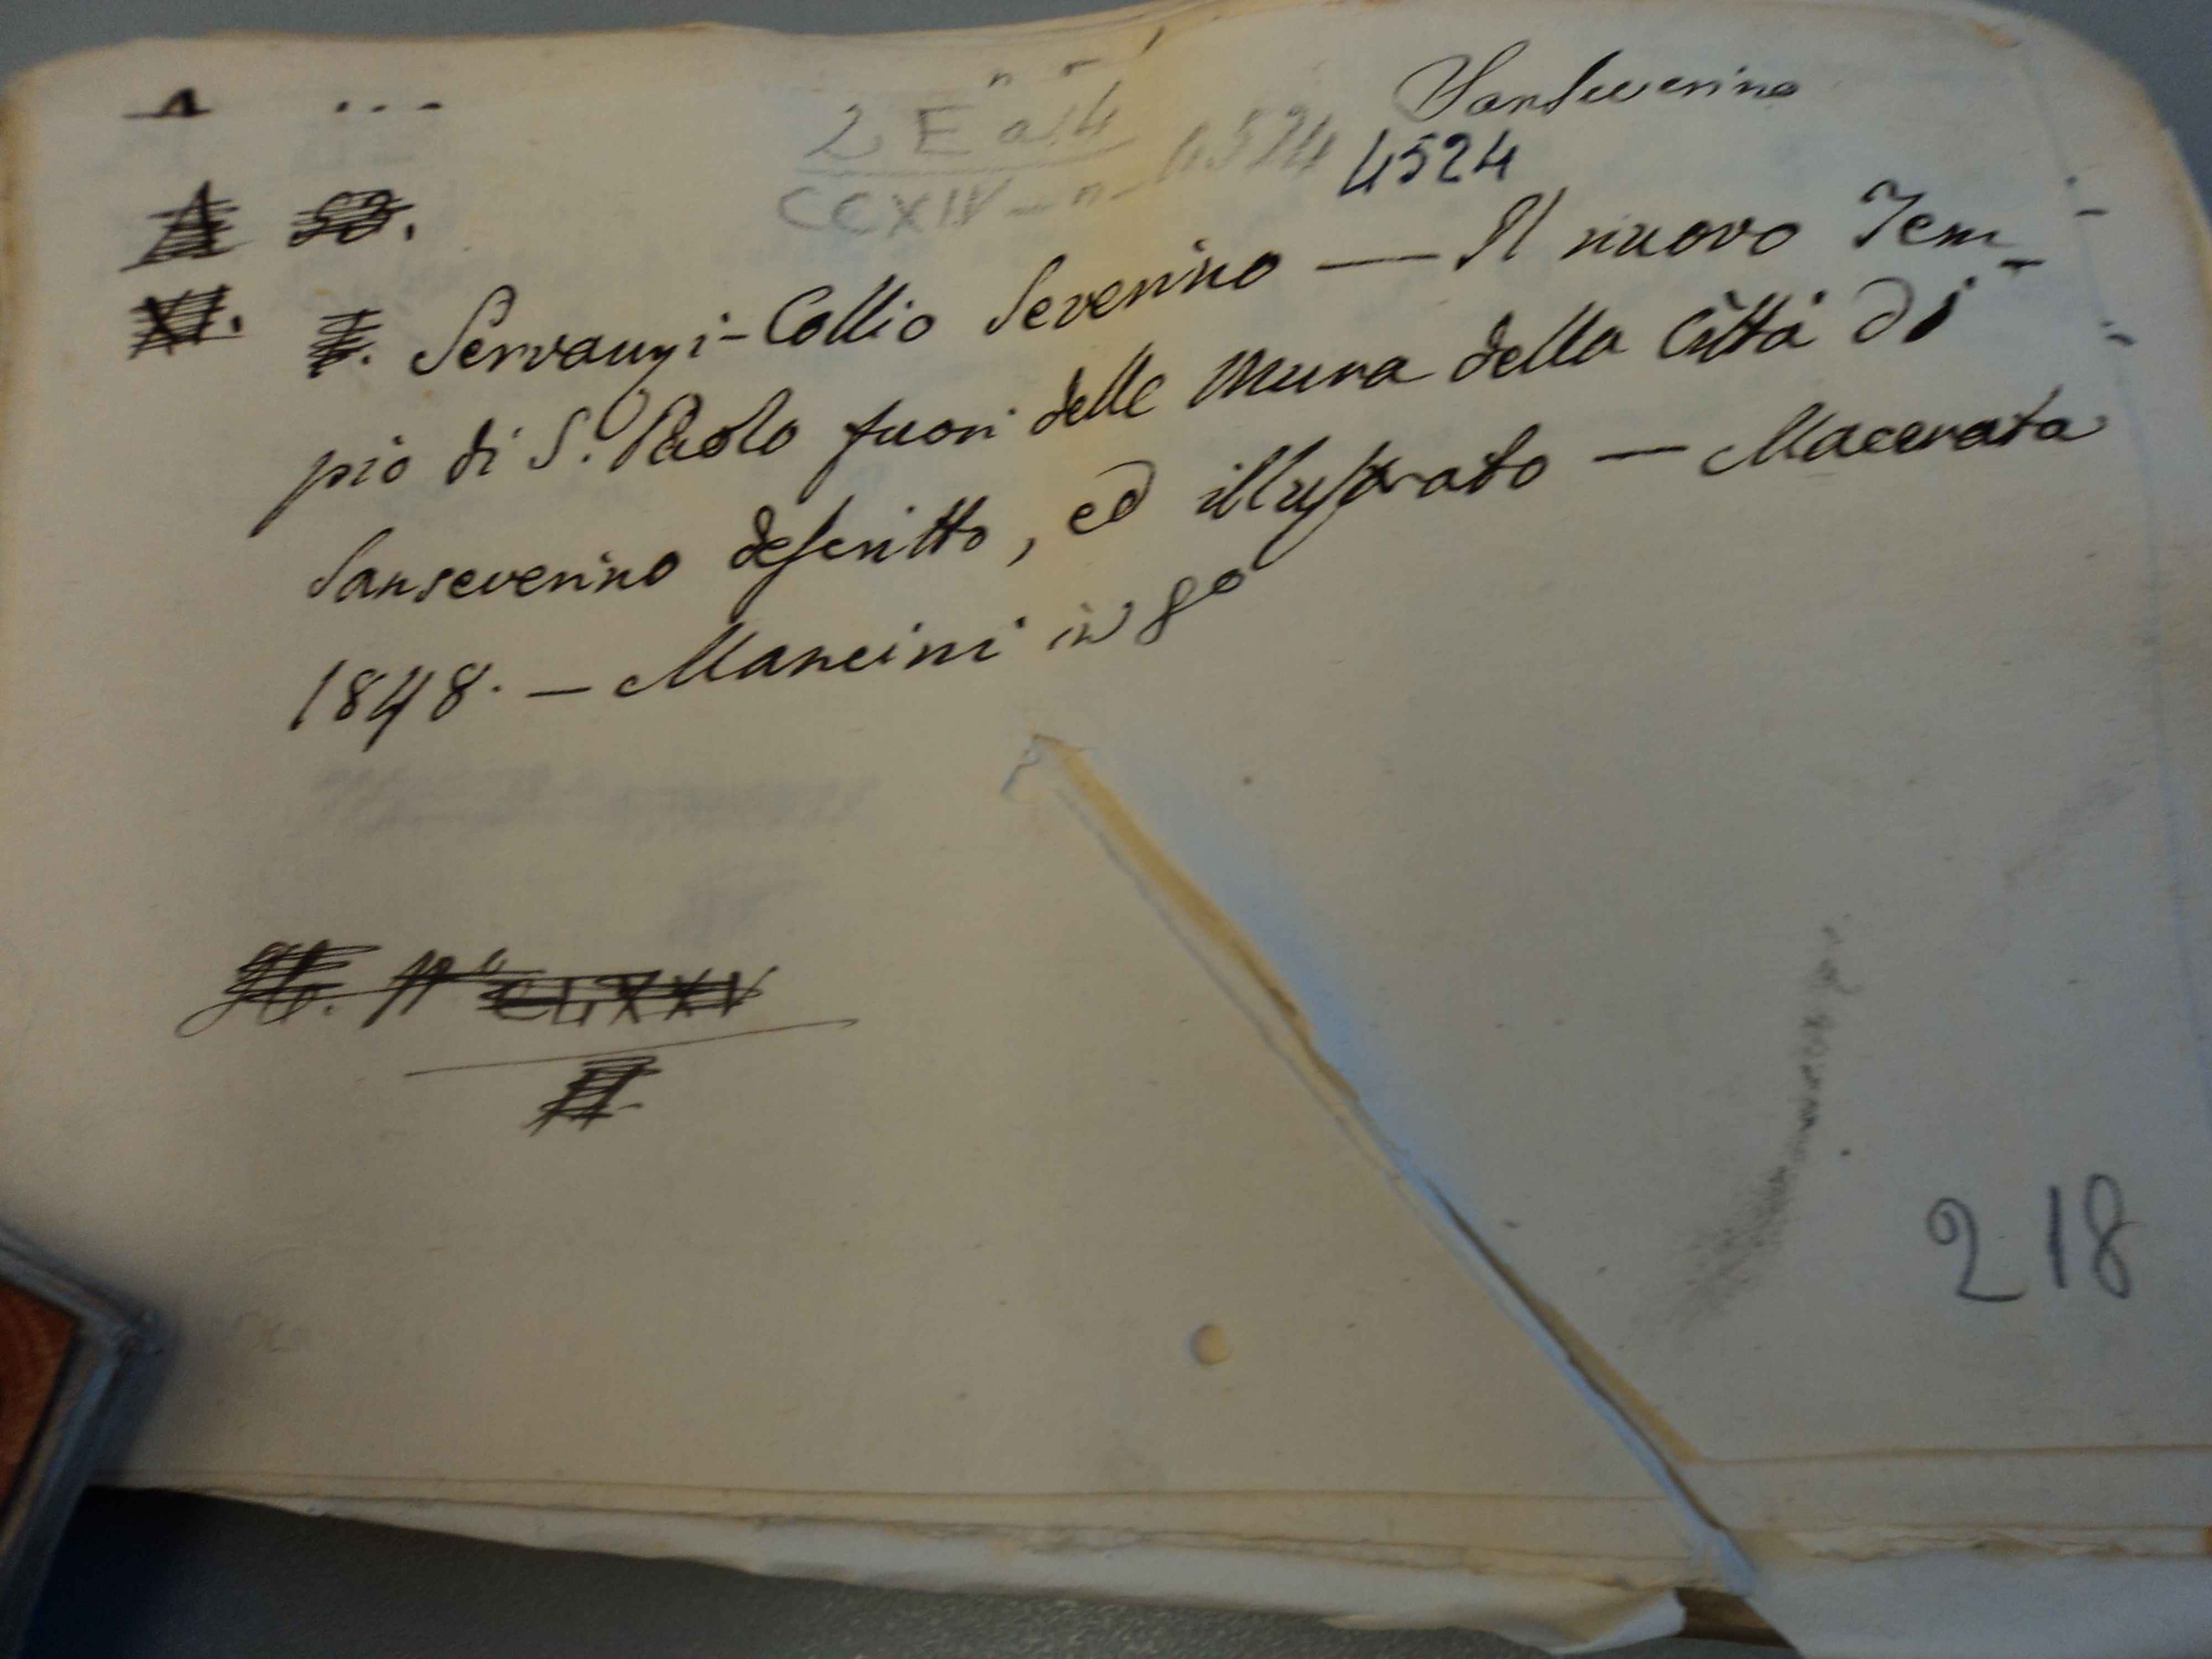 Sanseverino
2 E a 4
CCXIV - n - 4524 4524
Servanzi-Collio Severino — Il nuovo Tem-
pio di S. Paolo fuori delle Mura della Città di
Sanseverino descritto, ed illustrato — Macerata
1848. — Mancini in 8º
nº CLXXV
218